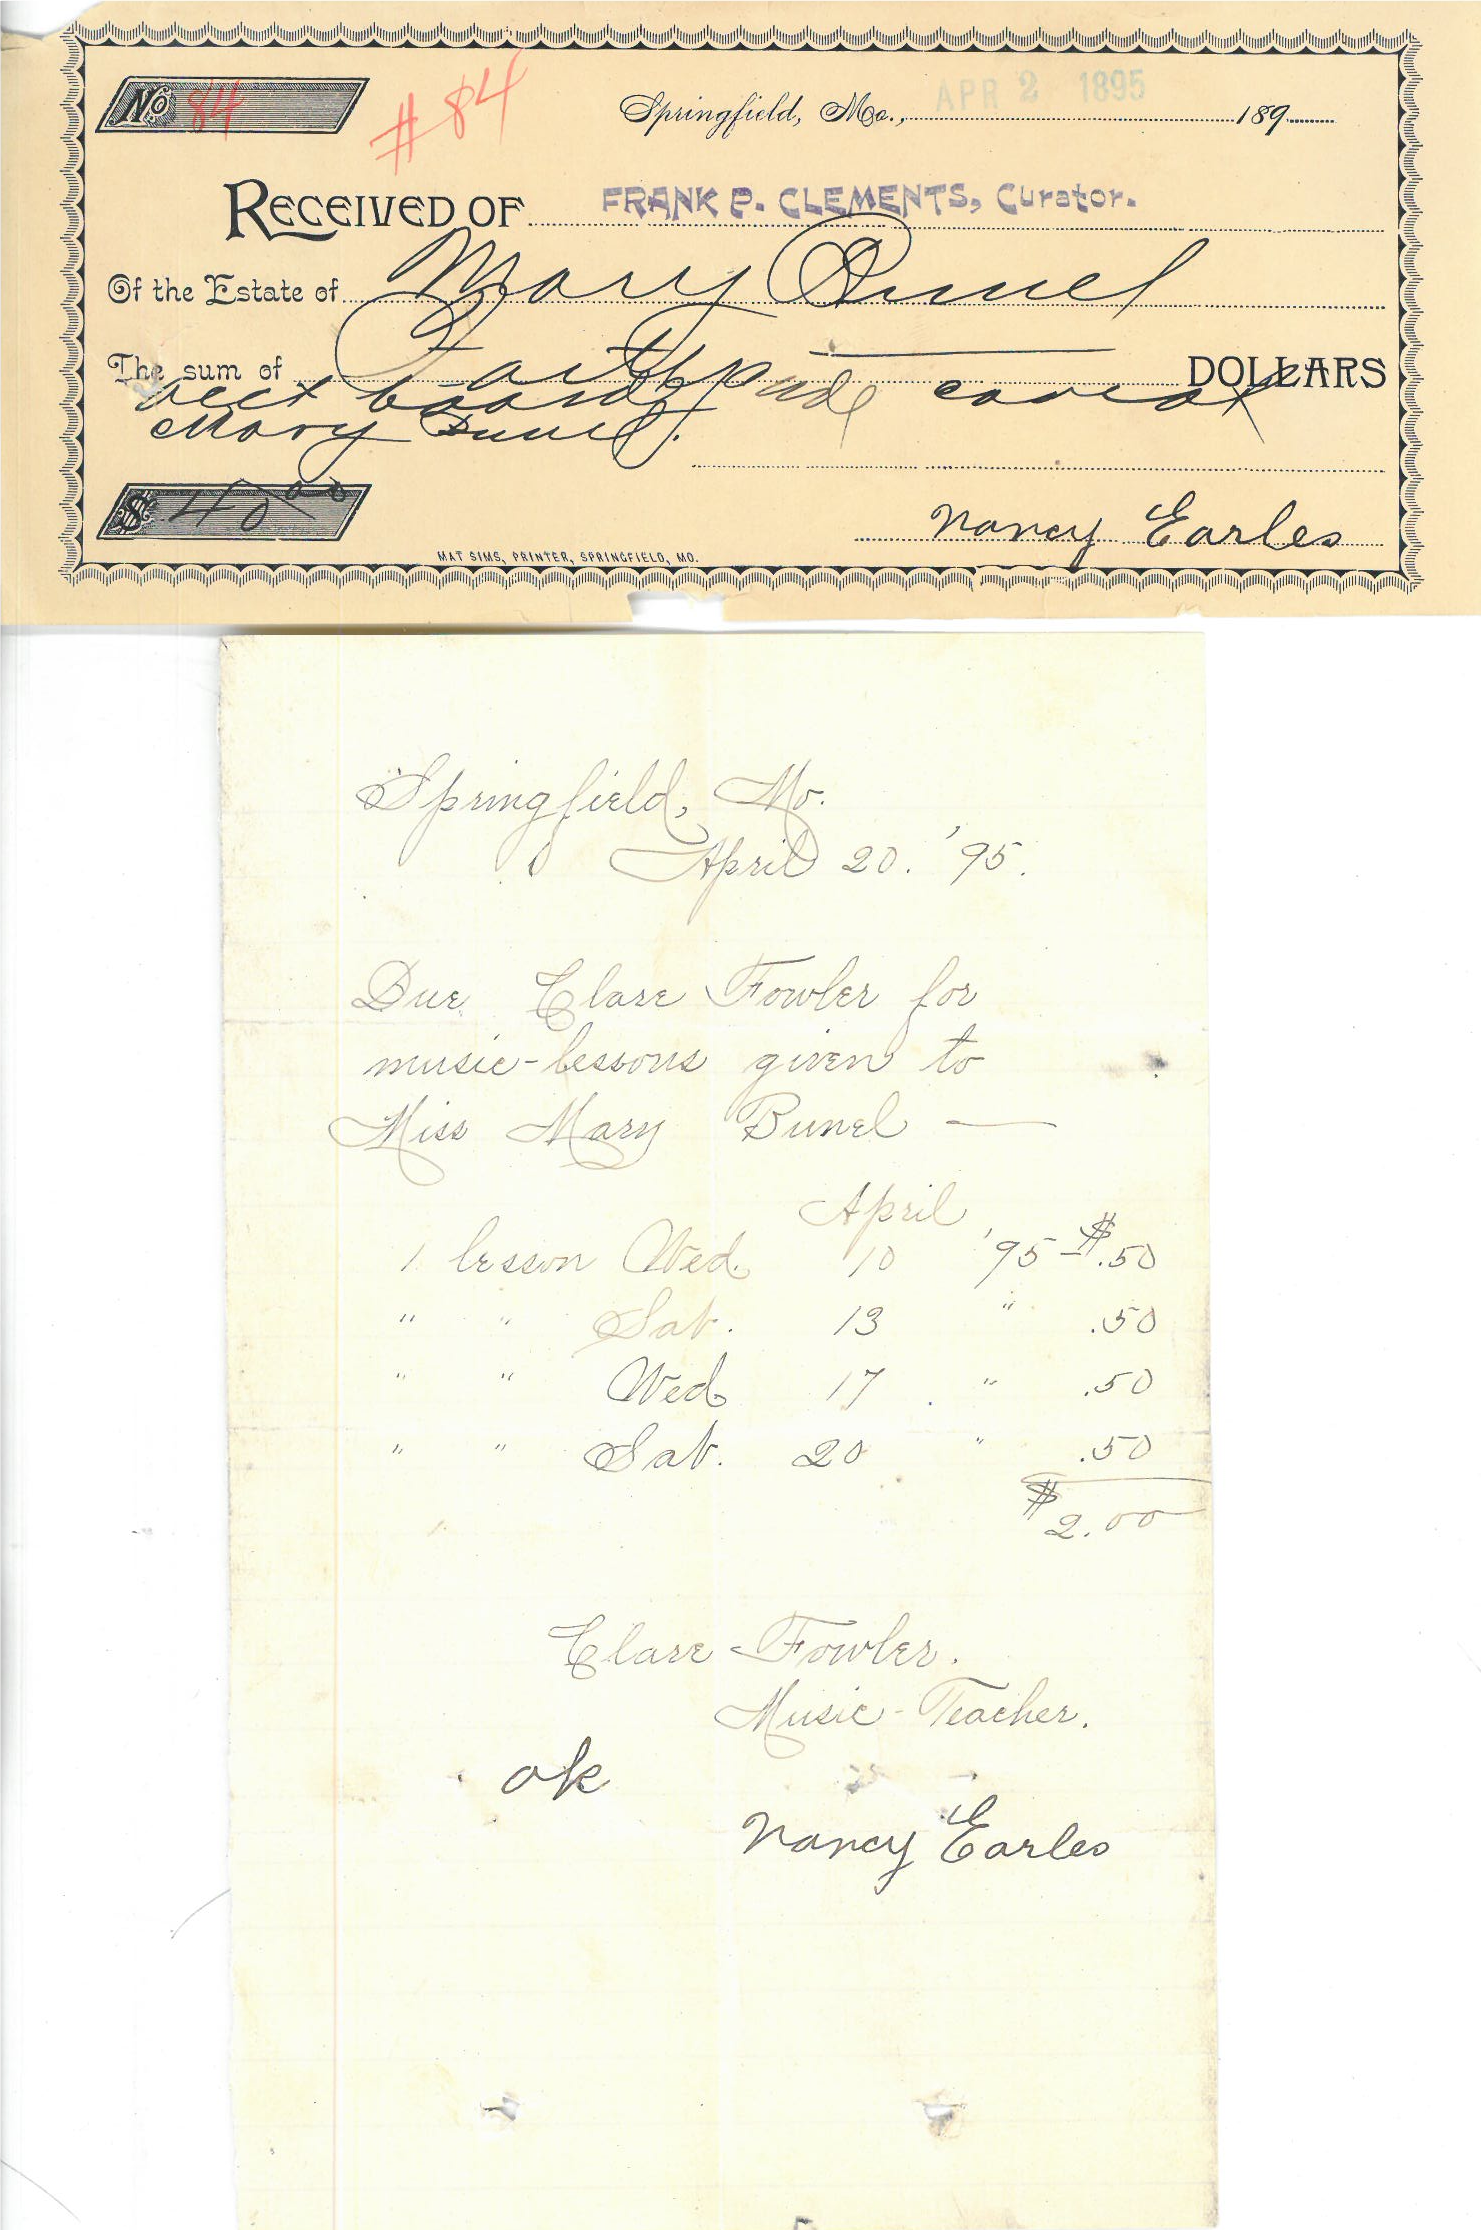 No 84
# 84
Springfield, Mo., APR 2 1895 189
RECEIVED OF FRANK P. CLEMENTS, Curator.
Of the Estate of Mary Bunel
The sum of Forty DOLLARS
board and
Mary Bunel.
$ 40 00
Nancy Earles
MAT SIMS, PRINTER, SPRINGFIELD, MO.
Springfield, Mo.
April 20. '95.
Due Clare Fowler for
music-lessons given to
Miss Mary Bunel —
April
1 lesson Wed. 10 '95 - $.50
" " Sat. 13 " .50
" " Wed 17 " .50
" " Sat. 20 " .50
$2.00
Clare Fowler.
Music-Teacher.
ok
Nancy Earles